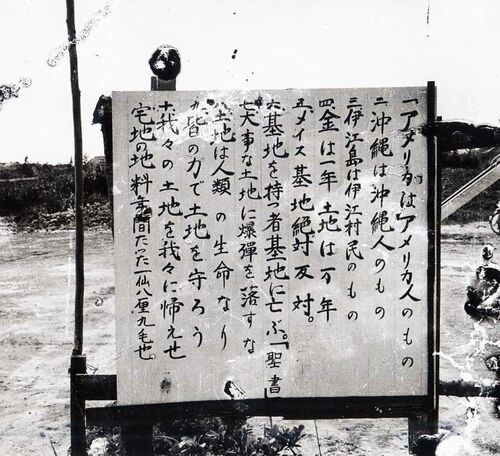 一アメリカはアメリカ人のもの
二沖縄は沖縄人のもの
三伊江島は伊江村民のもの
四金は一年土地は万年
五メイス基地絶対反対。
六基地を持つ者基地に亡ぶ。「聖書」
七大事な土地に爆弾を落すな
八土地は人類の生命なり
九皆の力で土地を守ろう
十我々の土地を我々に帰えせ
宅地の地料年間だった一仙八厘九毛也。